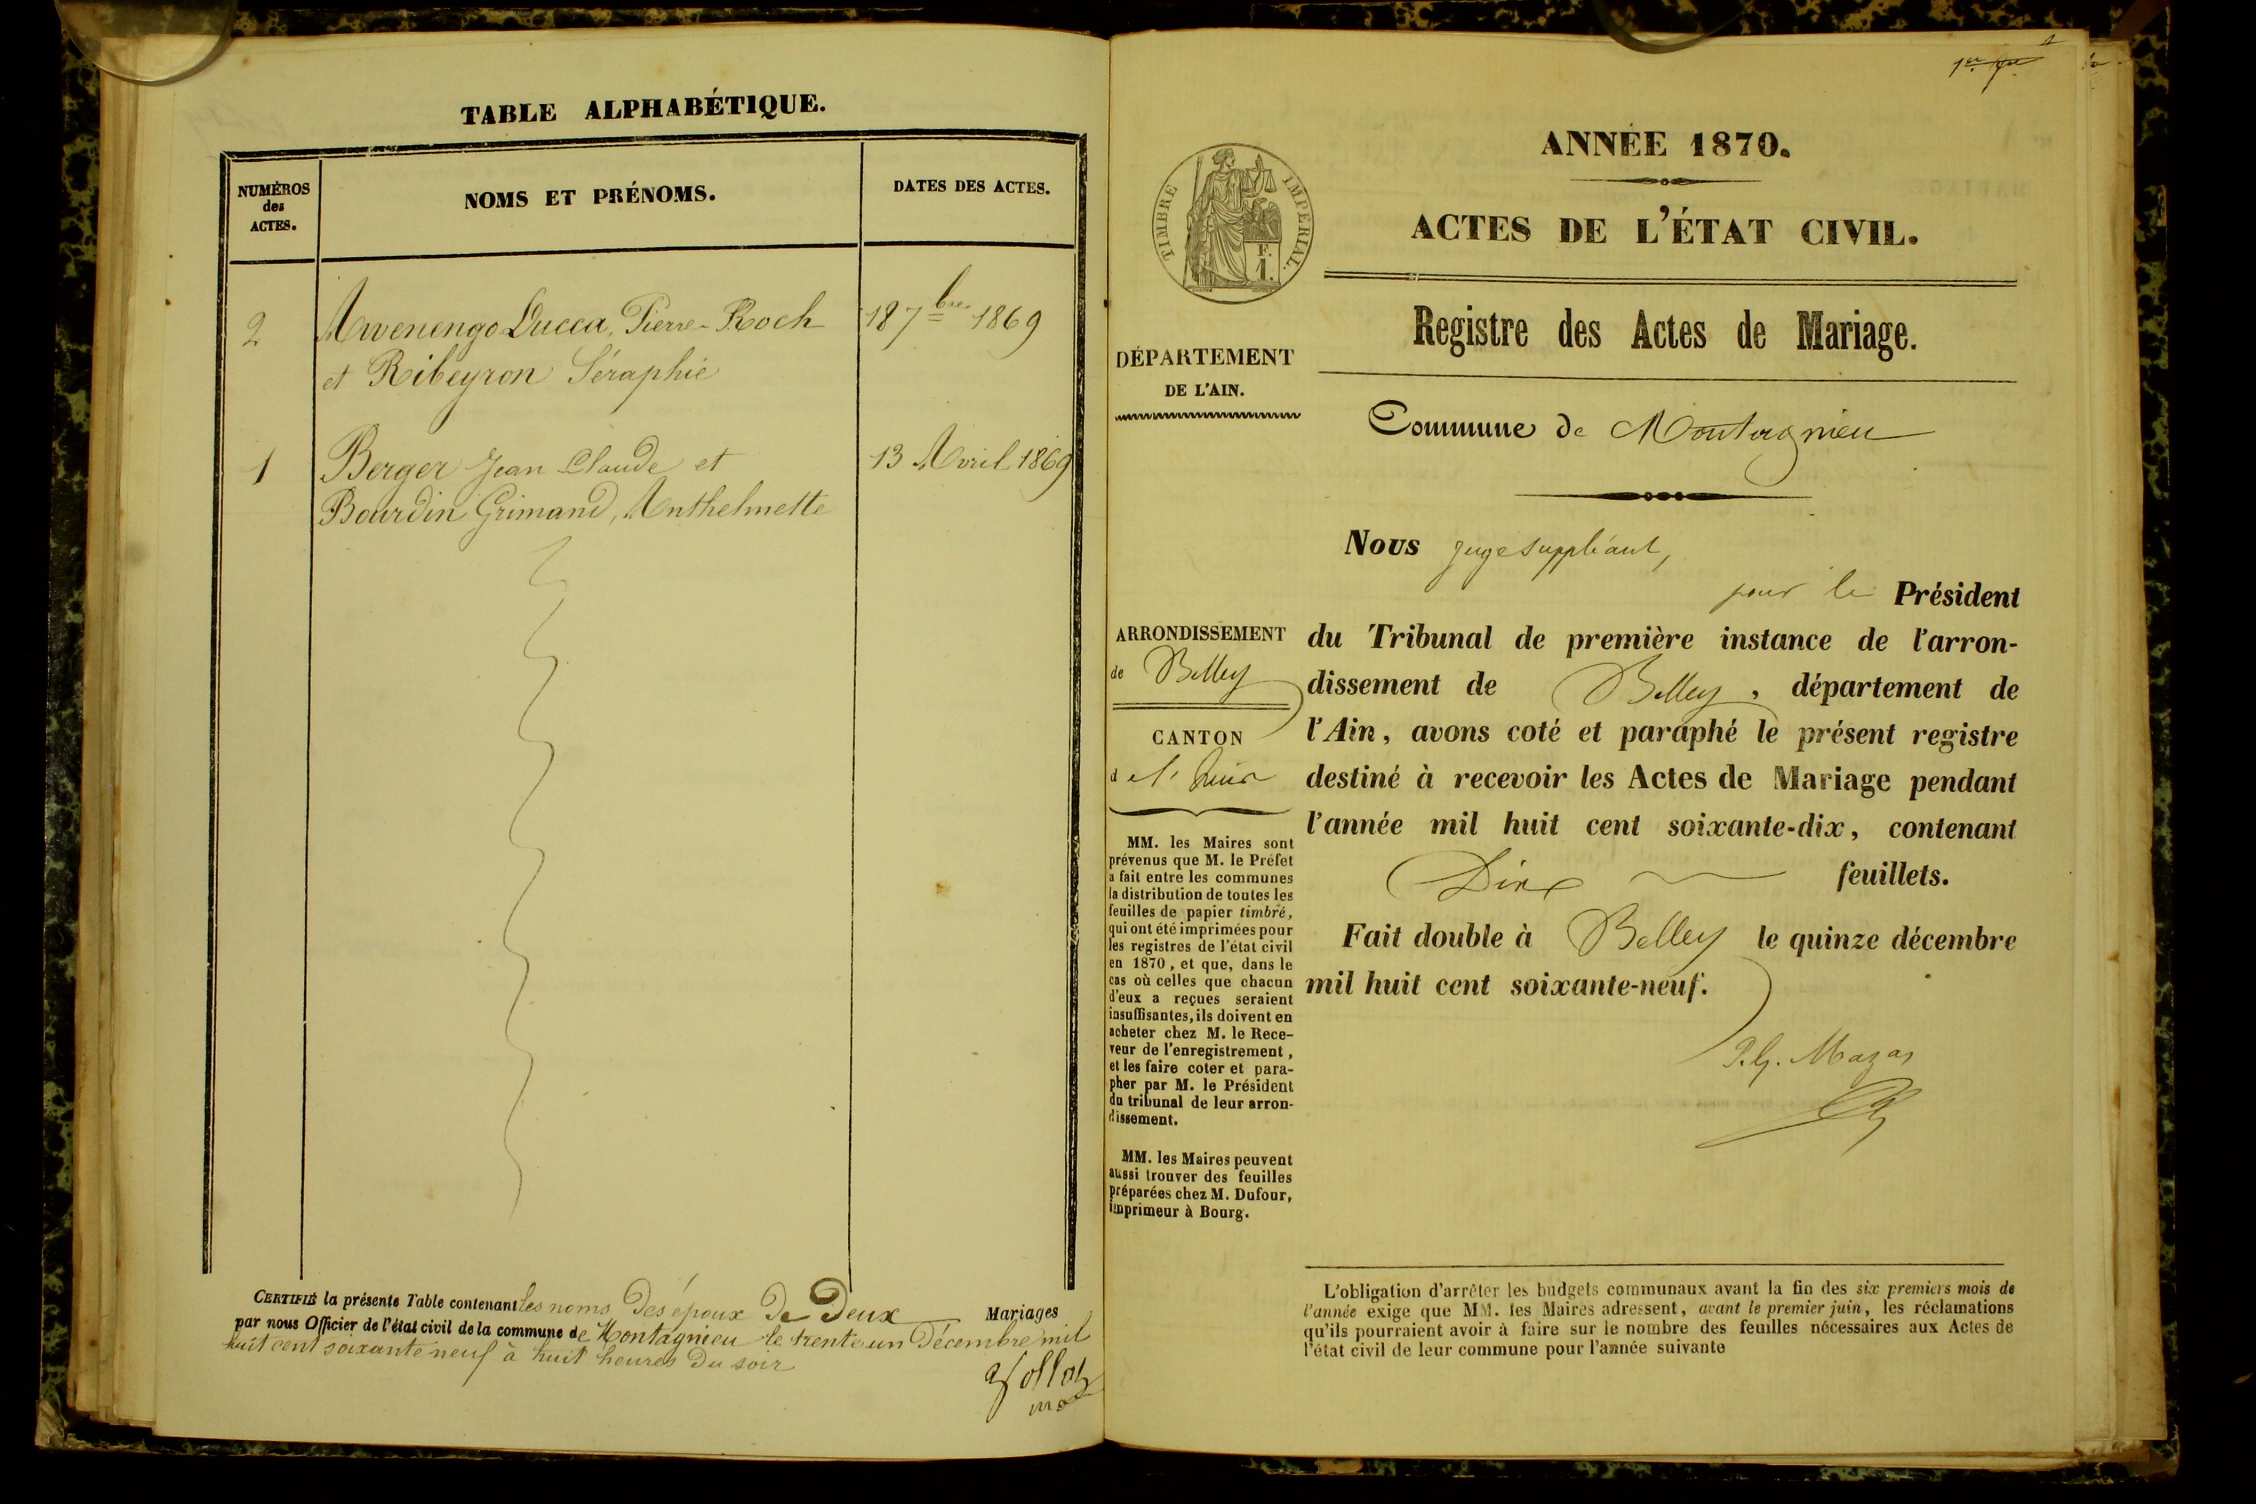 TABLE ALPHABÉTIQUE.
NUMÉROS
des
ACTES.
NOMS ET PRÉNOMS.
DATES DES ACTES.
2
Avvenengo Lucca, Pierre-Roch
et Ribeyron Séraphie
18 7bre 1869
1
Berger Jean Claude et
Bourdin Grimand, Anthelmette
13 Avril 1869
CERTIFIÉ la présente Table contenant les noms des époux de Deux Mariages
par nous Officier de l'état civil de la commune de Montagnieu le trente un Décembre mil
huit cent soixante neuf à huit heures du soir
ANNÉE 1870.
ACTES DE L'ÉTAT CIVIL.
TIMBRE IMPÉRIAL.
F.
1.
Registre des Actes de Mariage.
DÉPARTEMENT
DE L'AIN.
Commune de Montagnieu
Nous juge suppléant,
pour le Président
du Tribunal de première instance de l'arron-
dissement de Belley, département de
l'Ain, avons coté et paraphé le présent registre
destiné à recevoir les Actes de Mariage pendant
l'année mil huit cent soixante-dix, contenant
Dix feuillets.
Fait double à Belley le quinze décembre
mil huit cent soixante-neuf.
ARRONDISSEMENT
de Belley
CANTON
de l'huis
MM. les Maires sont
prévenus que M. le Préfet
a fait entre les communes
la distribution de toutes les
feuilles de papier timbré,
qui ont été imprimées pour
les registres de l'état civil
en 1870, et que, dans le
cas où celles que chacun
d'eux a reçues seraient
insuffisantes, ils doivent en
acheter chez M. le Rece-
veur de l'enregistrement,
et les faire coter et para-
pher par M. le Président
du tribunal de leur arron-
dissement.
MM. les Maires peuvent
aussi trouver des feuilles
préparées chez M. Dufour,
imprimeur à Bourg.
L'obligation d'arrêter les budgets communaux avant la fin des six premiers mois de
l'année exige que MM. les Maires adressent, avant le premier juin, les réclamations
qu'ils pourraient avoir à faire sur le nombre des feuilles nécessaires aux Actes de
l'état civil de leur commune pour l'année suivante